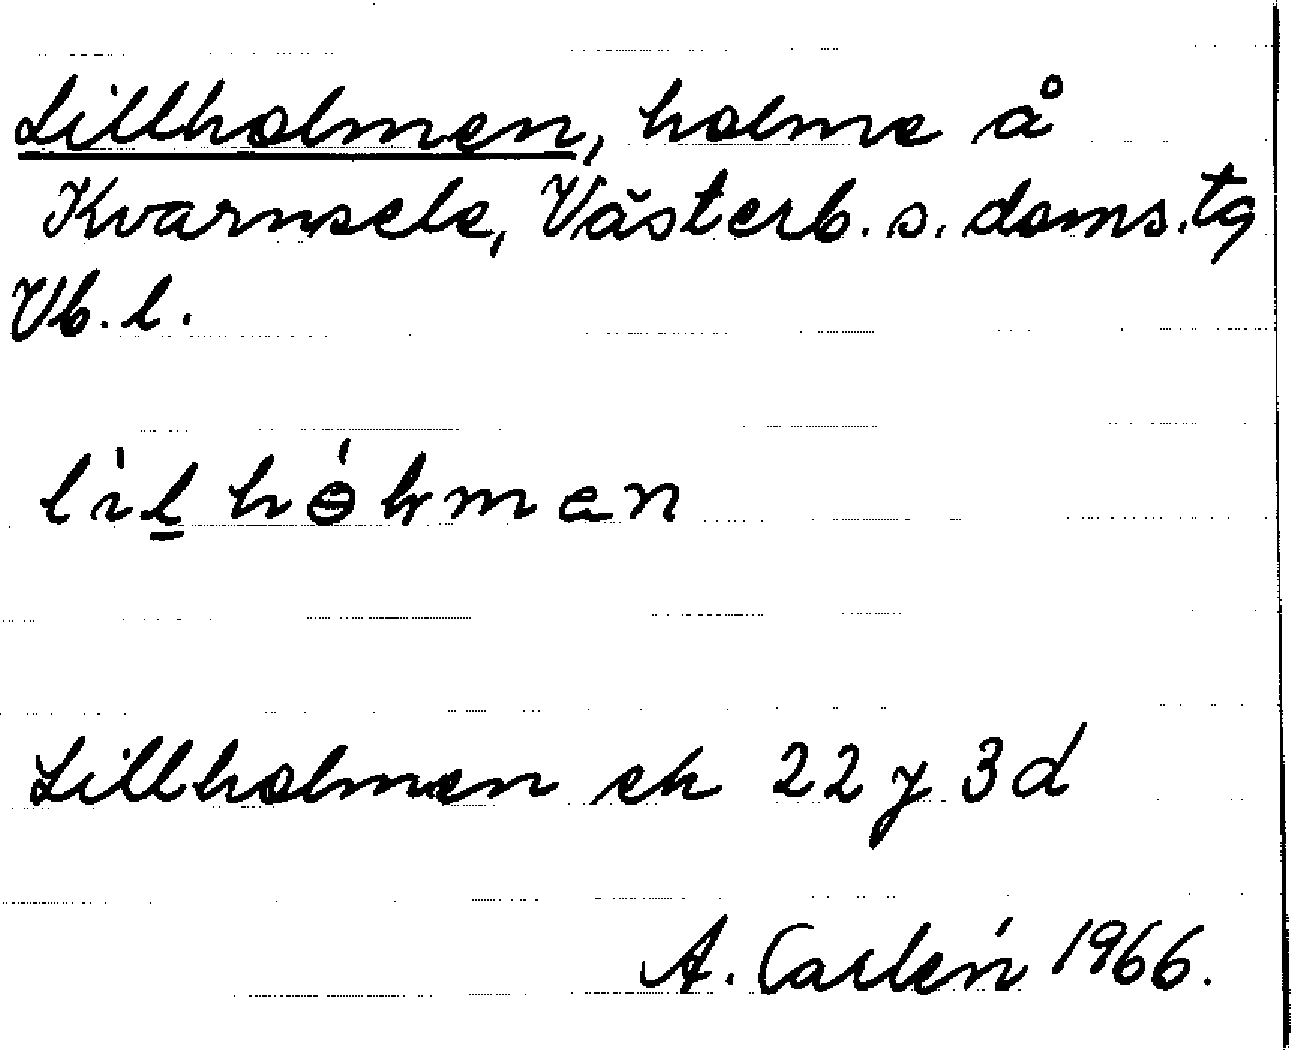 Lillholmen, holme å
Kvarnsele, Västerb. s. doms. tg
Vb. l.
Lillholmen ek 22 y 3d
A. Carlén 1966.